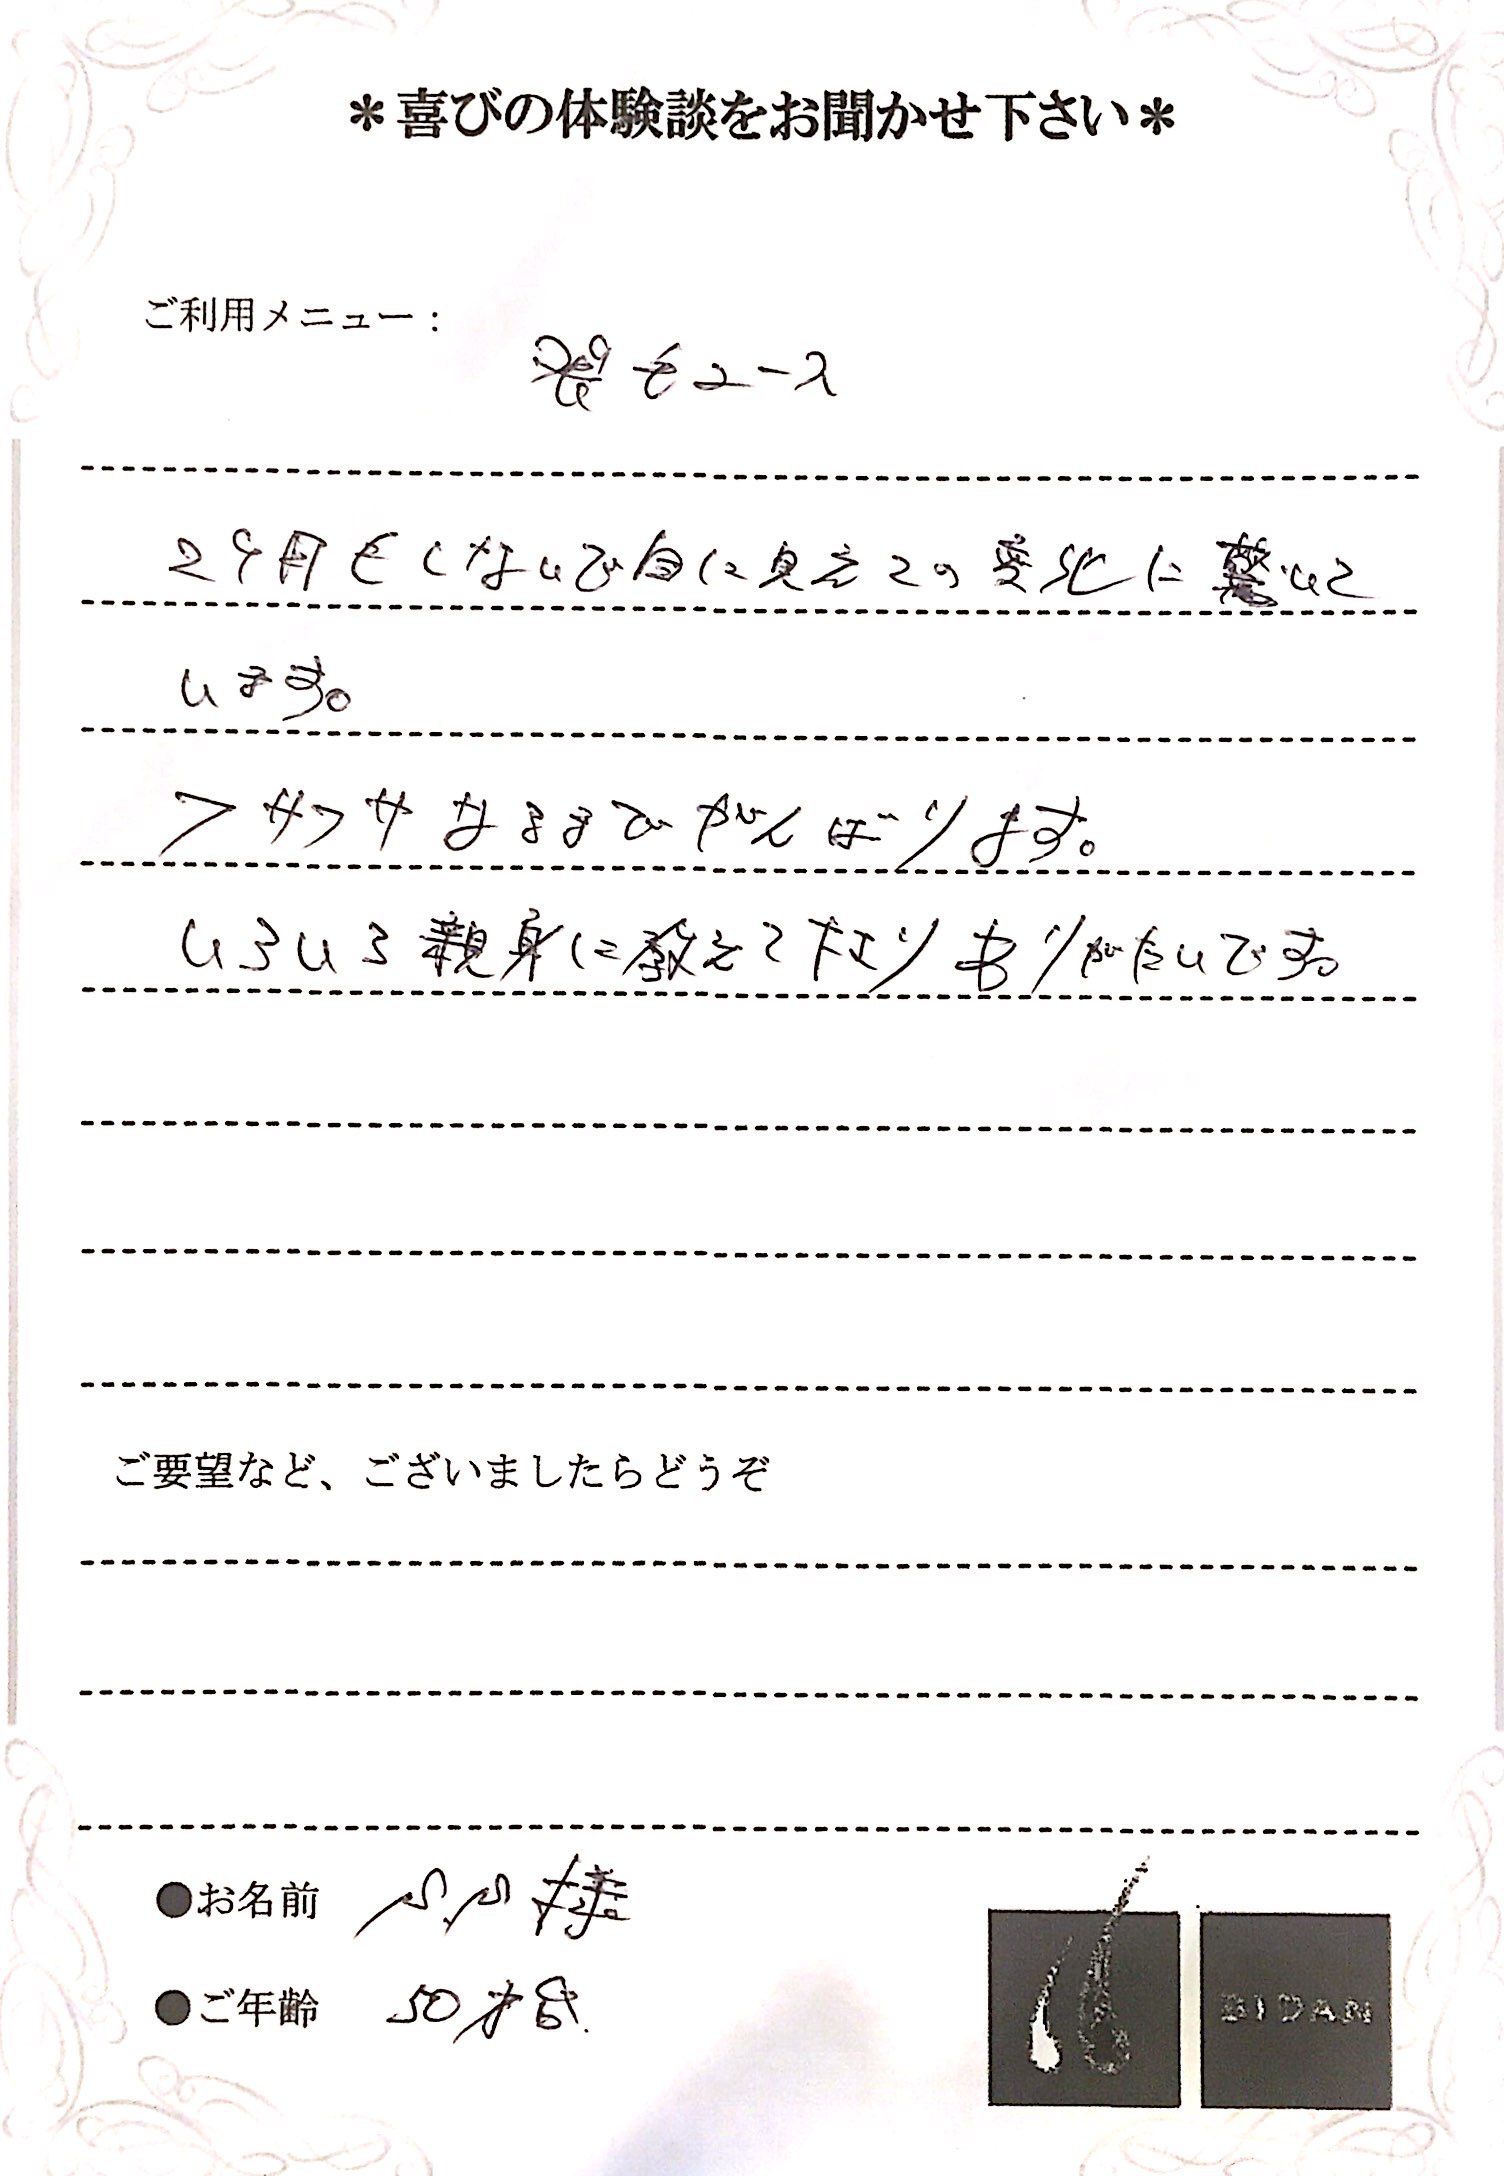 ＊喜びの体験談をお聞かせ下さい＊
ご利用メニュー：
発毛コース
2ヶ月もしないで目に見えての変化に驚いて
います。
フサフサなるまでがんばります。
いろいろ親身に教えて下さりありがたいです。
ご要望など、ございましたらどうぞ
●お名前 M.M 様
●ご年齢 50才台.
BIDAN